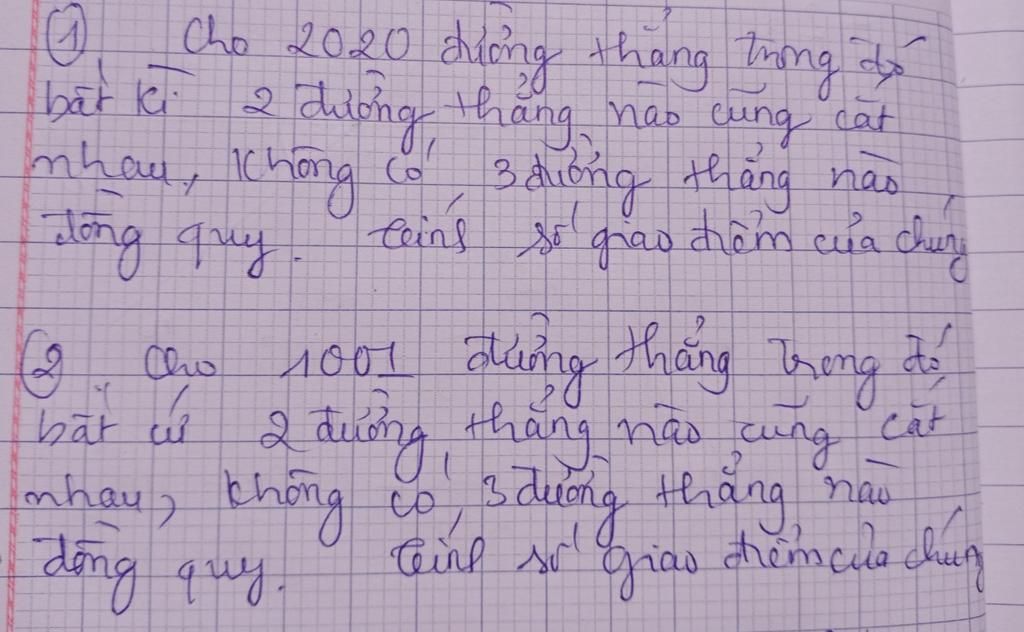 ① Cho 2020 đường thẳng trong đó
bất kì 2 đường thẳng nào cũng cắt
nhau, không có 3 đường thẳng nào
đồng quy. tính số giao điểm của chúng
② Cho 1001 đường thẳng trong đó
bất cứ 2 đường thẳng nào cũng cắt
nhau, không có 3 đường thẳng nào
đồng quy. tính số giao điểm của chúng